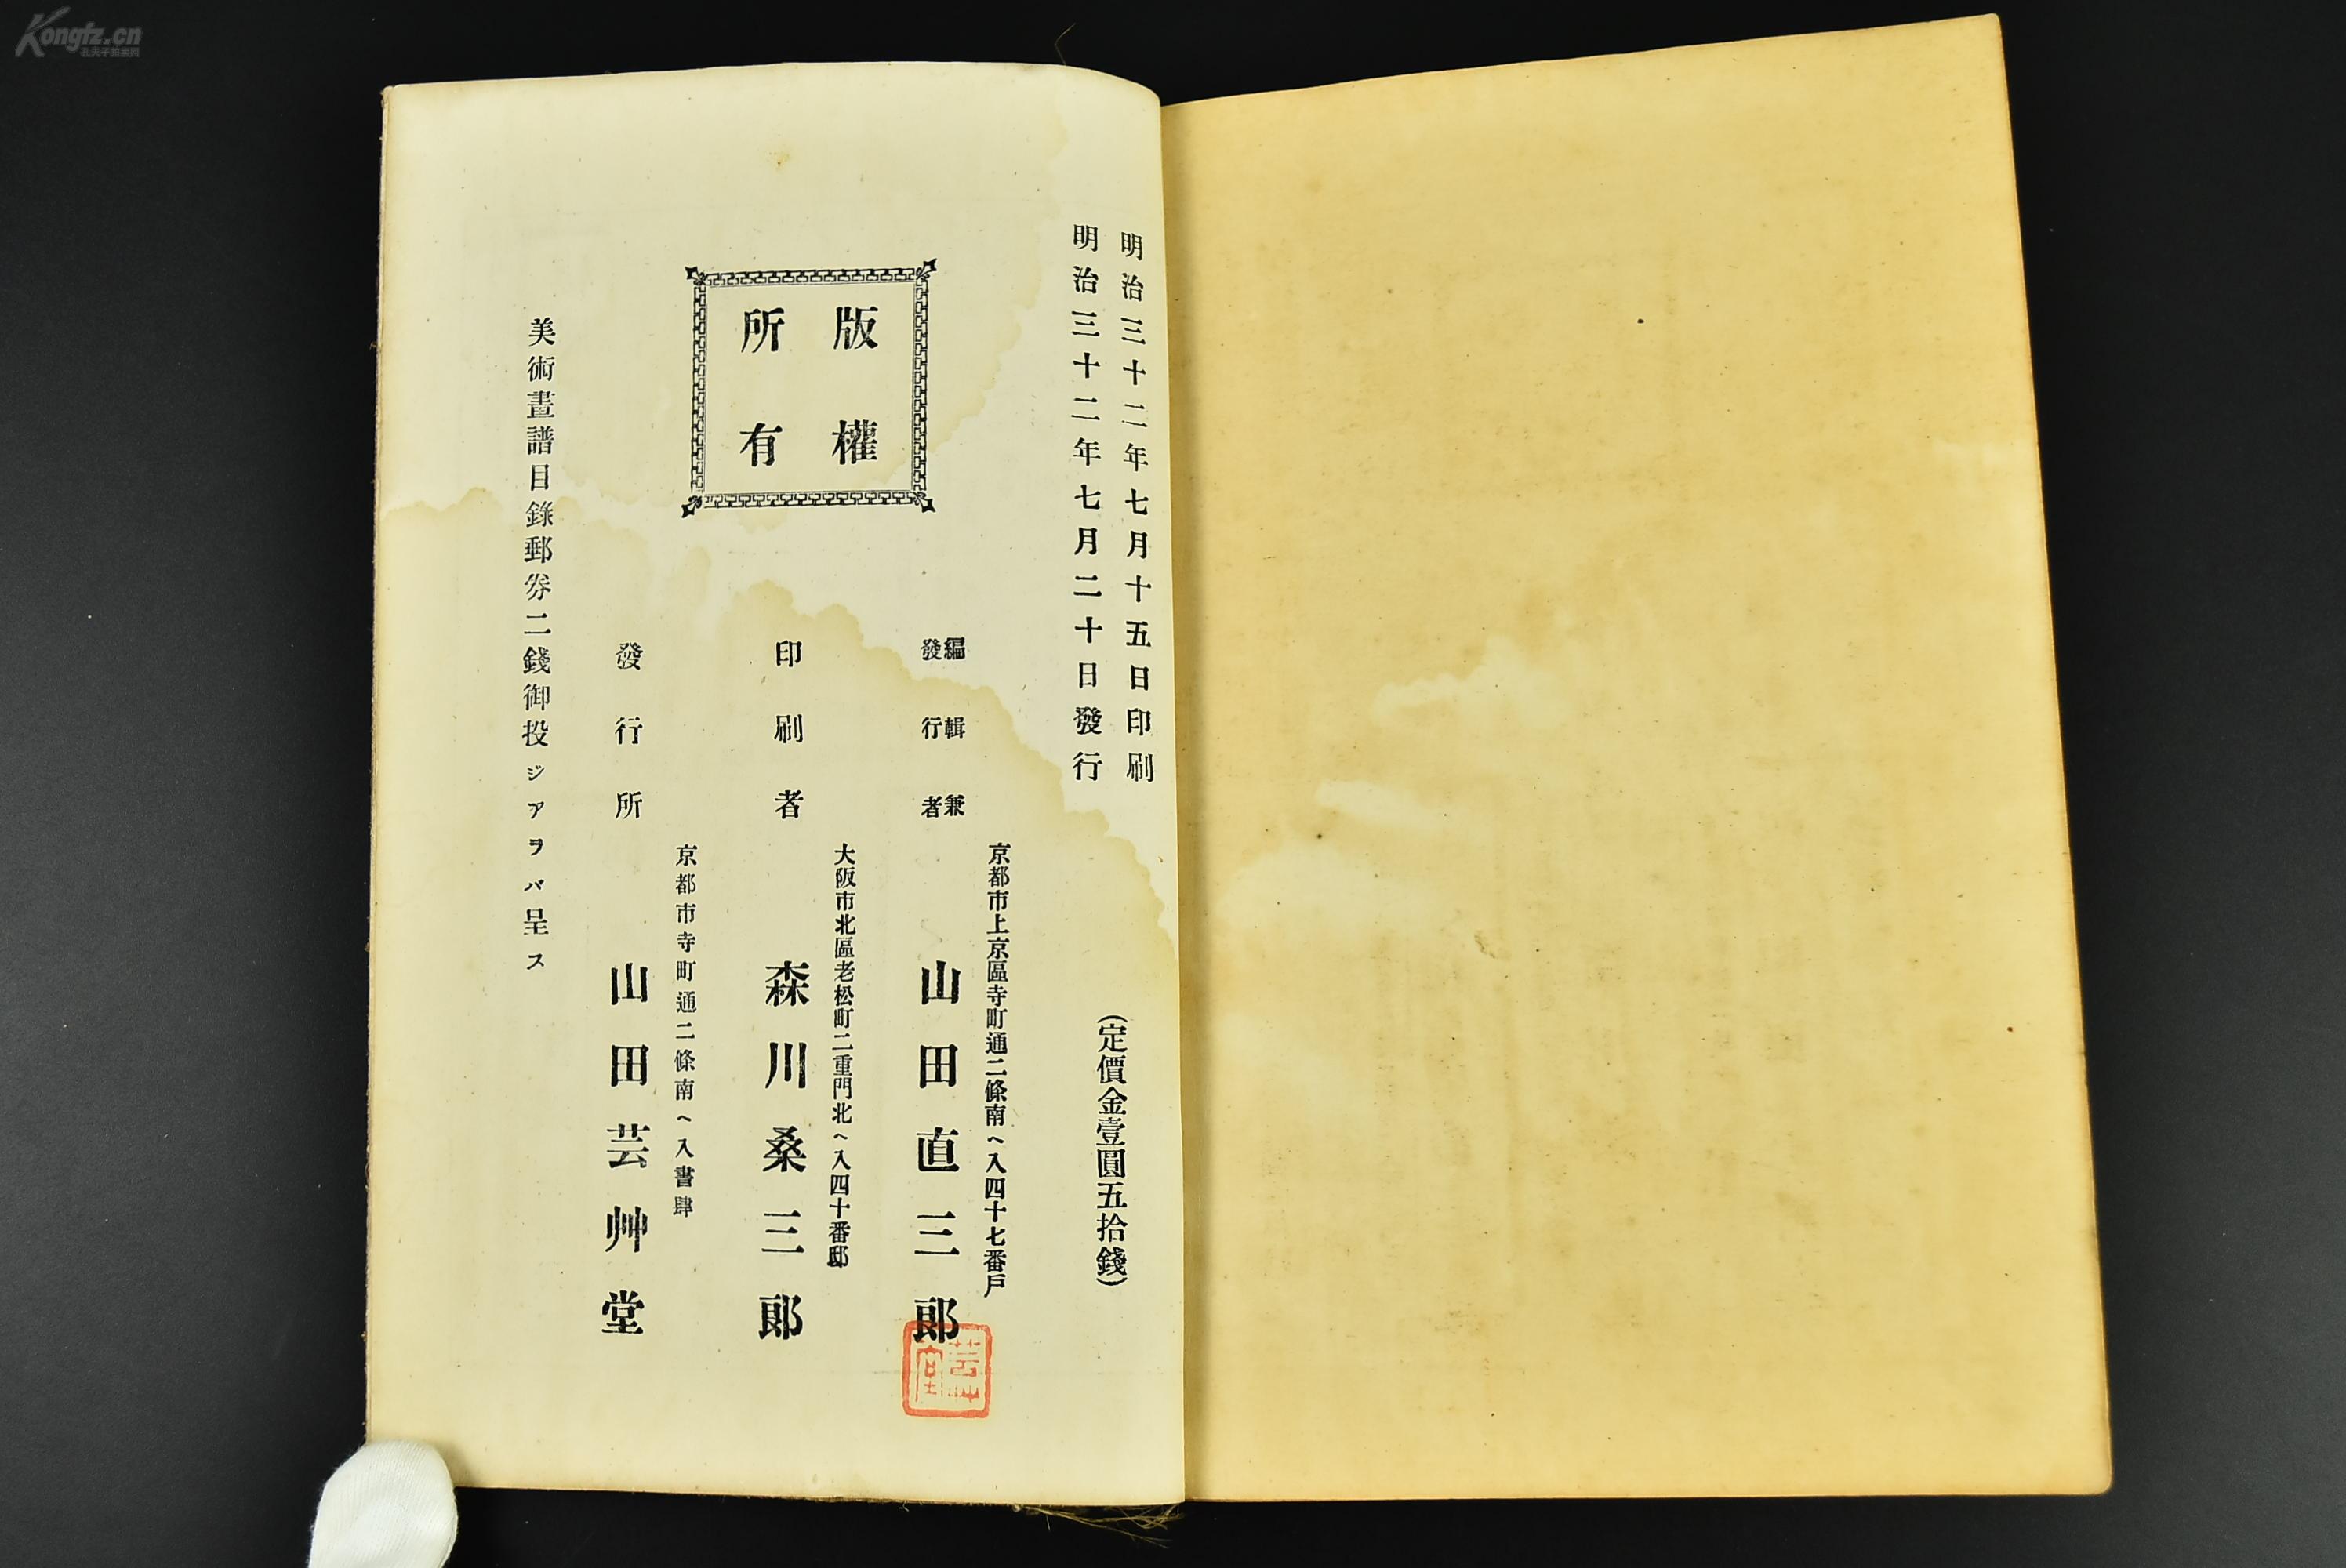 明治三十二年七月十五日印刷
明治三十二年七月二十日發行
(定價金壹圓五拾錢)
版權
所有
編輯兼
發行者
京都市上京區寺町通二條南ヘ入四十七番戸
山田直三郎
芸艸
堂
印刷者
大阪市北區老松町二重門北ヘ入四十番邸
森川桑三郎
發行所
京都市寺町通二條南ヘ入書肆
山田芸艸堂
美術畫譜目錄郵券二錢御投ジアラバ呈ス
Kongfz.cn
孔夫子拍卖网